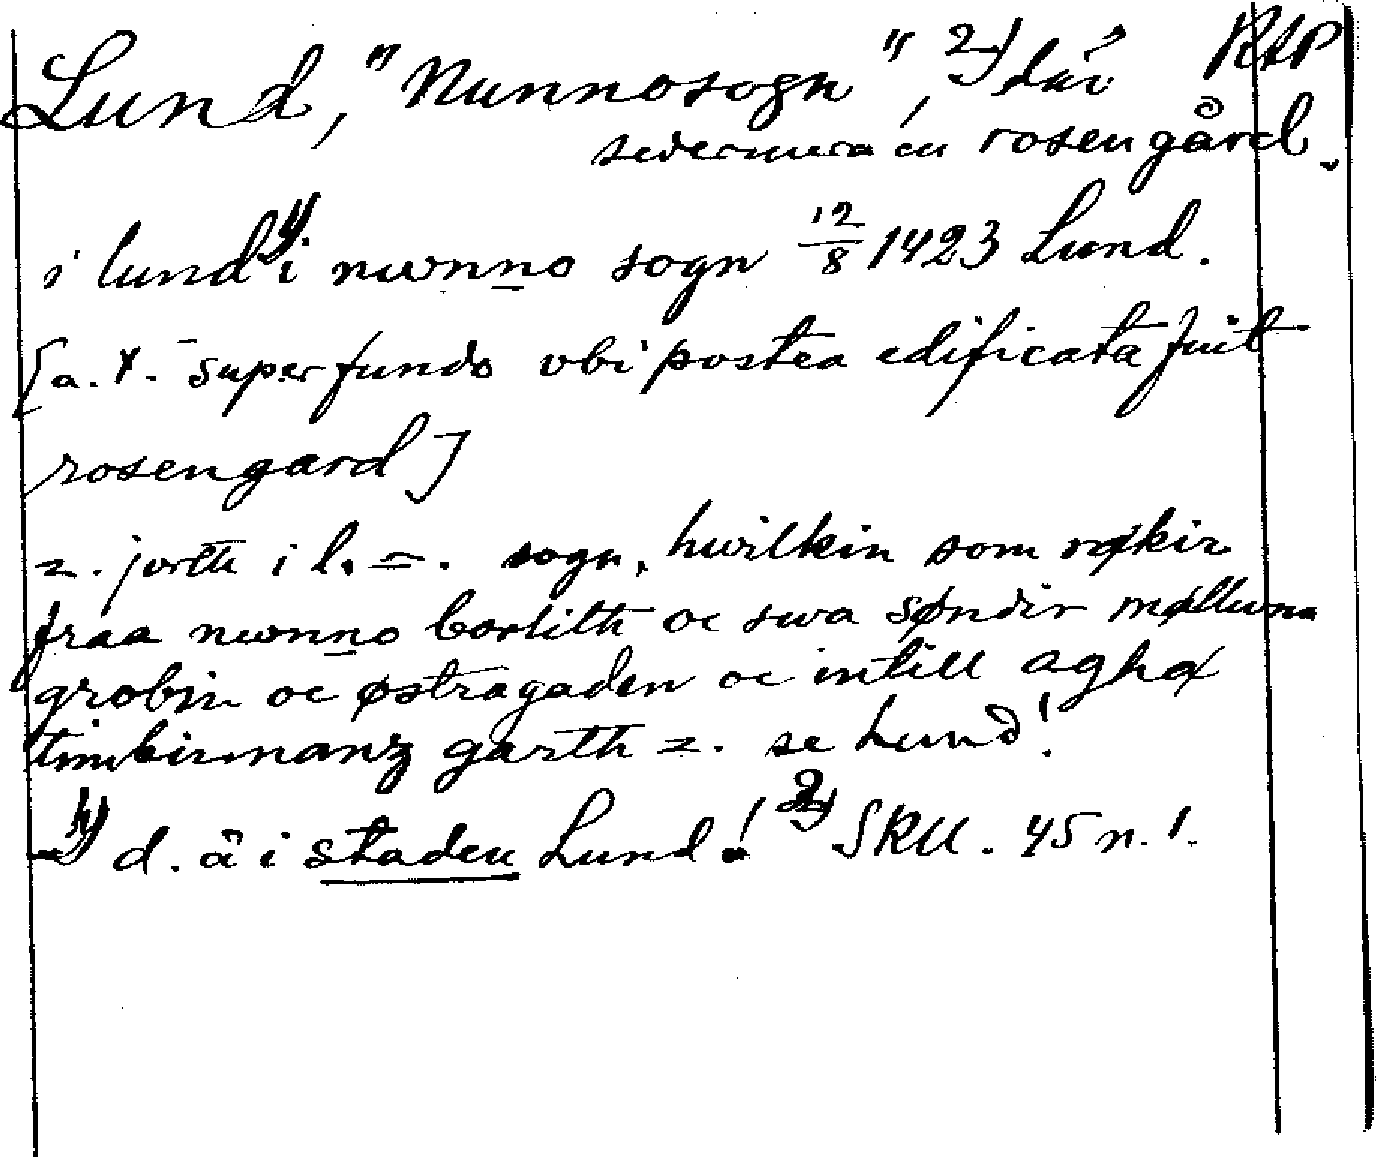 Lund, "Nunnosogn", 2) där RAP
sedermera en rosengård.
i lund 1) i nwnno sogn 12/8 1423 Lund.
[a. t. - super fundo vbi postea edificata fuit
rosengard]
=. jorth i l. =. sogn, hwilkin som rækir
fraa nwnno bortith oc swa søndir møllwna
grobin oc østragaden oc intill aghæ
timbirmanz garth =. se Lund!
1) d. ä i staden Lund! 2) SRU. 45 n. 1.